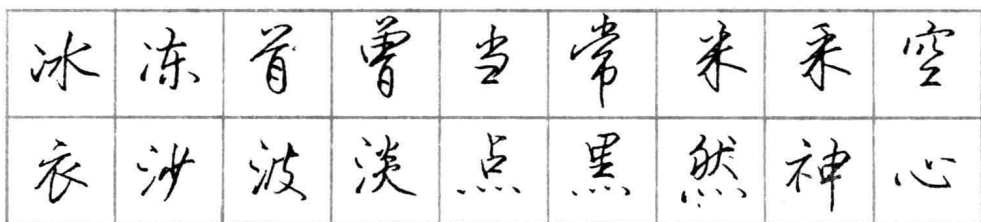 冰冻首曾当常米采空
衣沙波淡点黑然神心